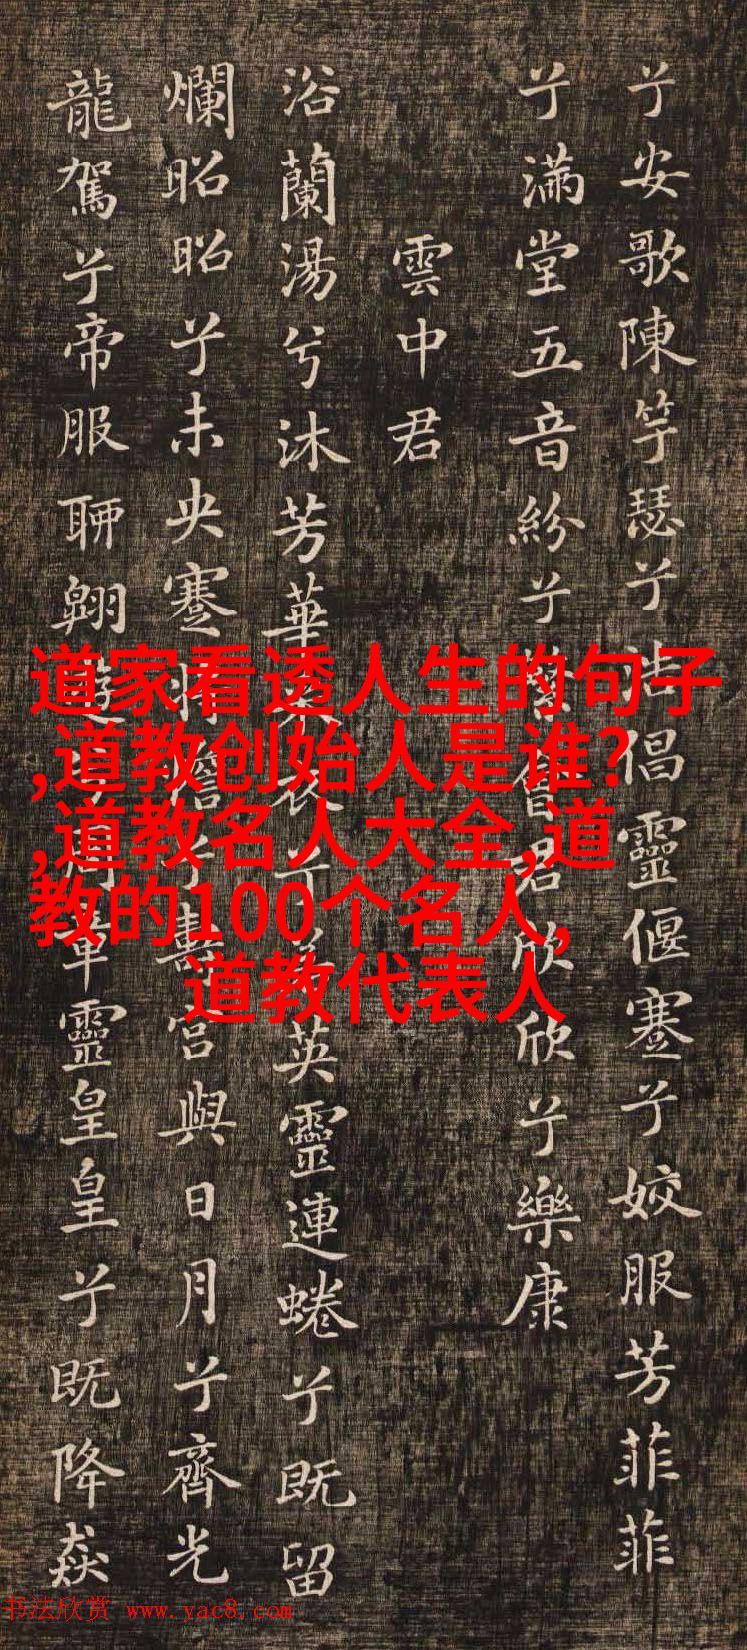 兮安歌陳竽瑟兮浩倡靈偃蹇兮姣服芳菲菲
兮滿堂五音紛兮繁會君欣欣兮樂康
雲中君
浴蘭湯兮沐芳華采衣兮若英靈連蜷兮既留
爛昭昭兮未央蹇將憺兮壽宮與日月兮齊光
龍駕兮帝服聊翱遊兮周章靈皇皇兮既降猋
道家看透人生的句子
,道教创始人是谁?
,道教名人大全,道
教的100个名人,
道教代表人
书法欣赏 www.yac8.com